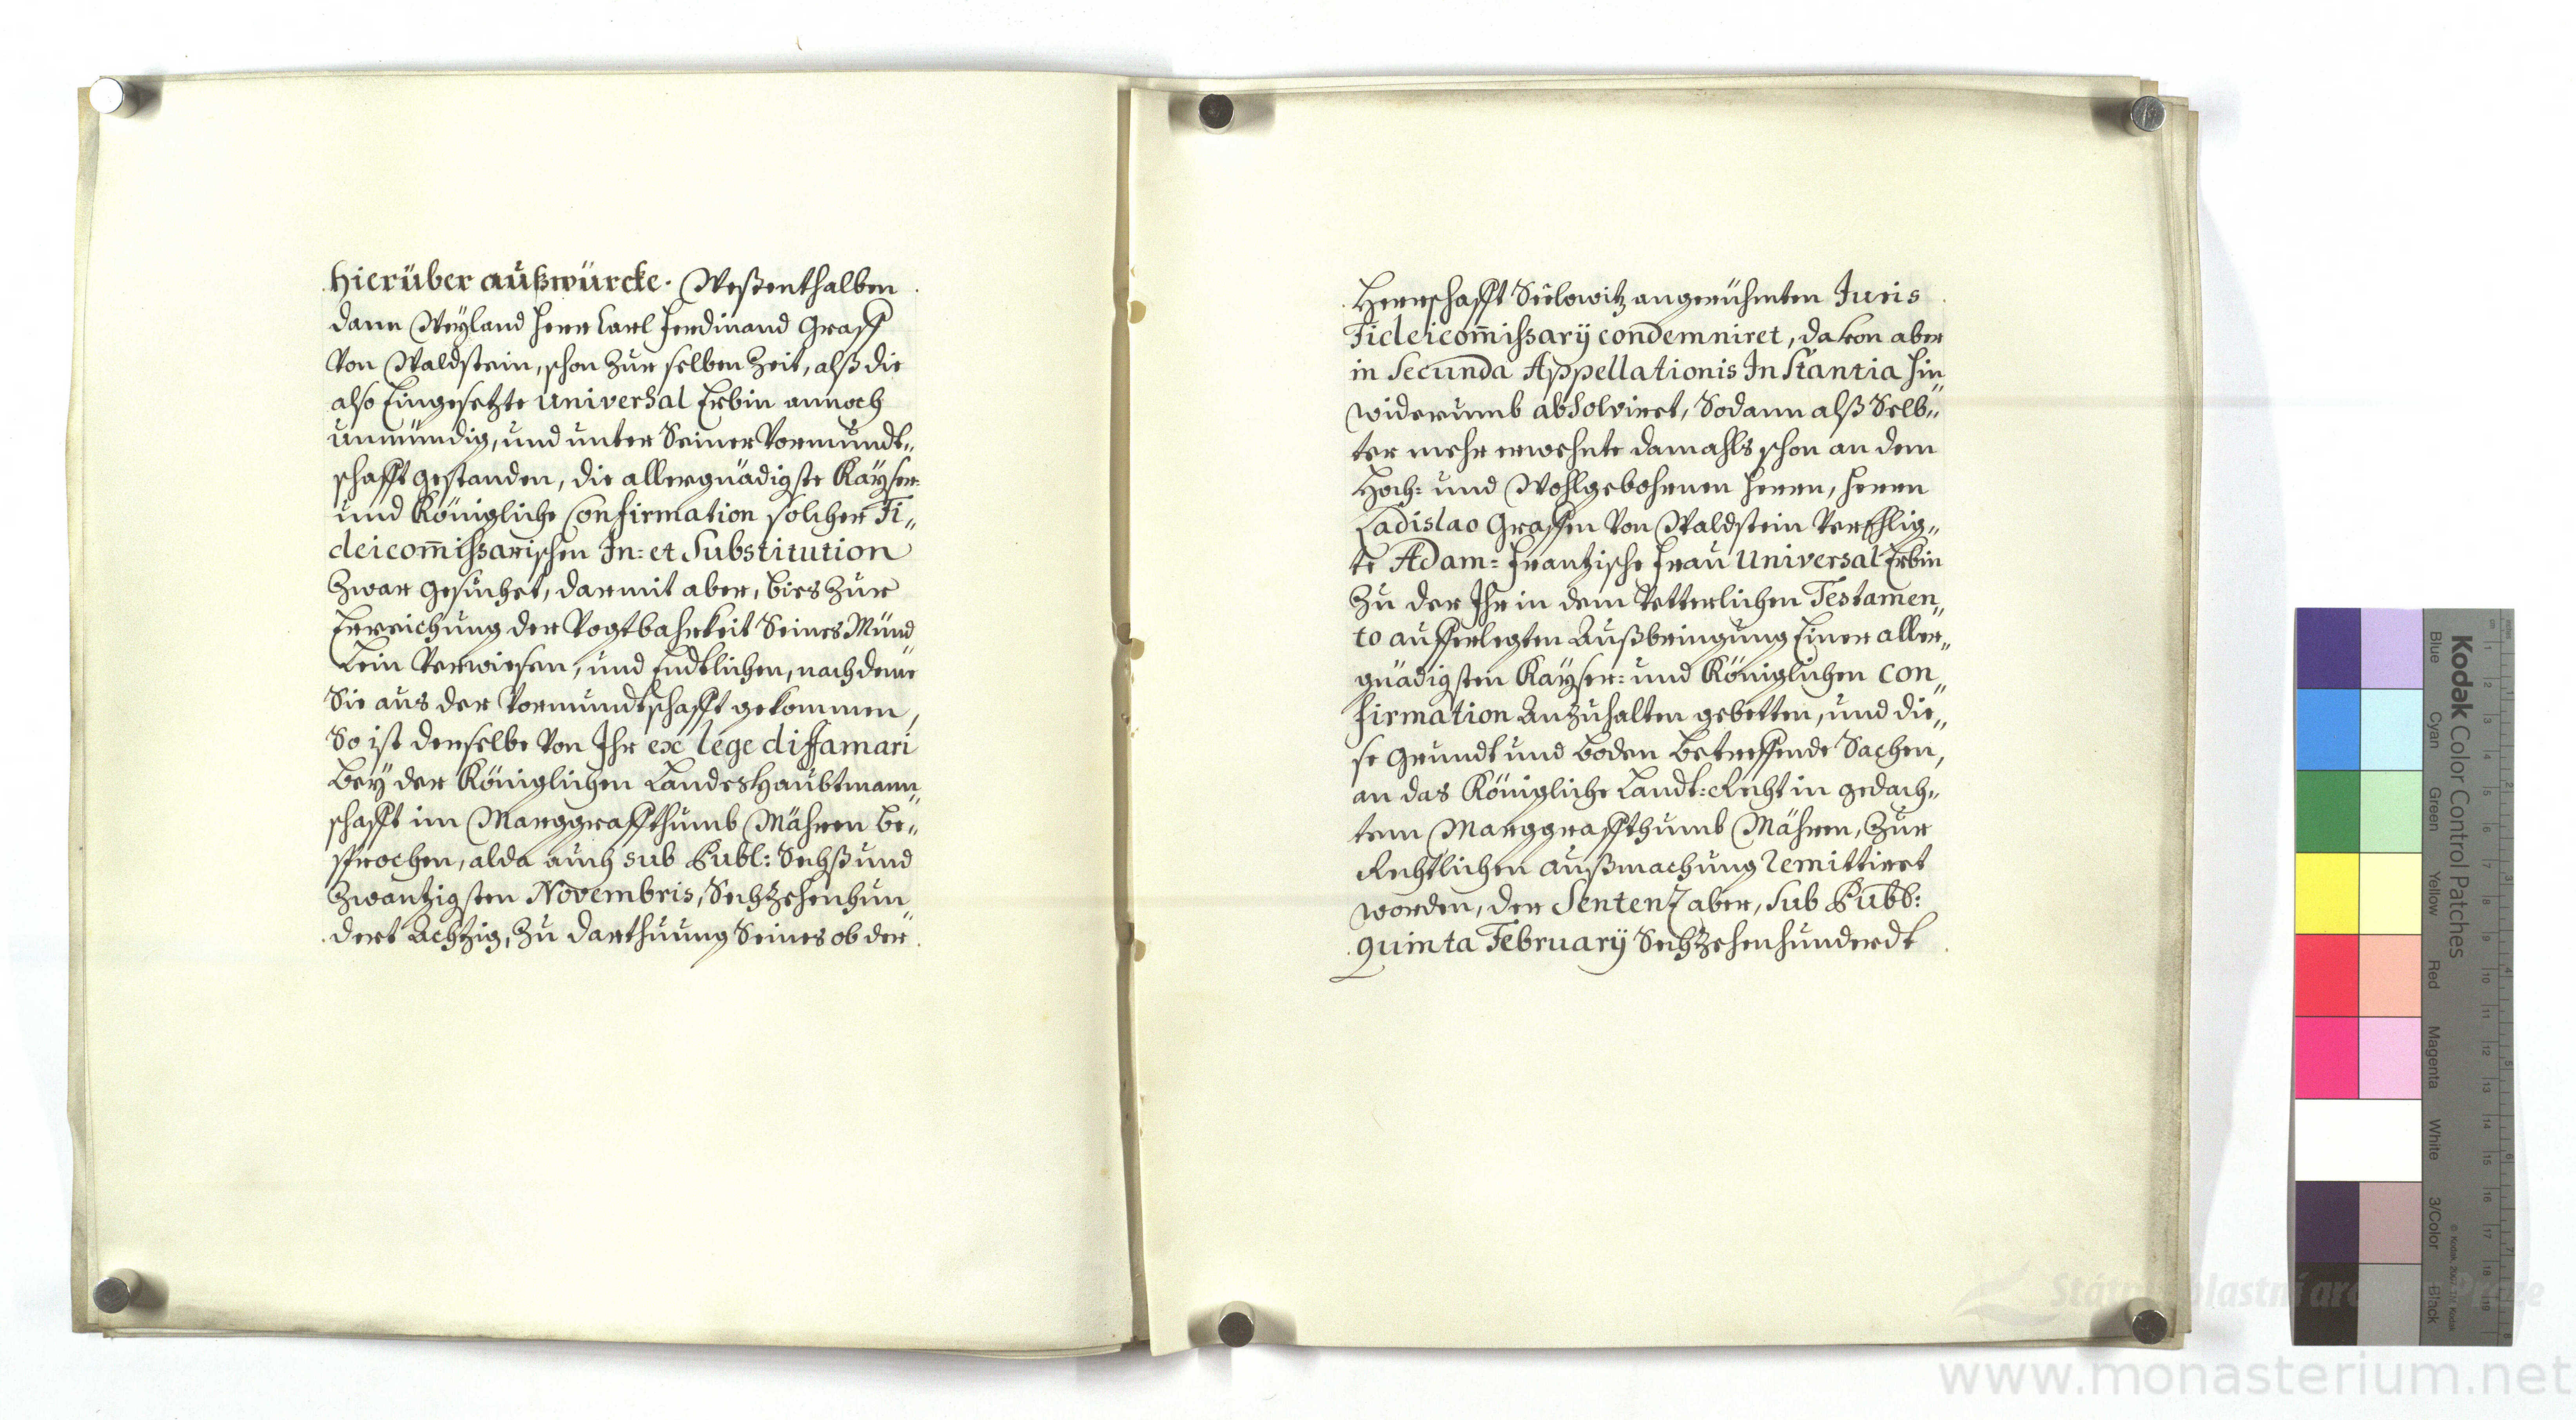 hierüber außwürcke. Weßenthalben
dann Weyland Herr Carl Ferdinand Graff
Von Waldstein, schon Zur selben Zeit, alß die
also Eingesetzte Universal Erbin annoch
unmündig, und unter Seiner Vormundt„
schafft gestanden, die allergnädigste Kayser:
und Königliche Confirmation solcher Fi„
deicom̄ißarischen In: et Substitution
Zwar gesuchet, darmit aber, bies Zur
Erreichung der Vogtbahrkeit Seines Münd
Lein Verwiesen, und Endtlichen, nachdeme
Sie aus der Vormundtschafft gekommen,
So ist derselbe Von Ihr ex lege diffamari
Bey der Königlichen Landeshaubtmann„
schafft im Marggraffthumb Mähren be„
sprochen, alda auch sub Publ: Sechß und
Zwantzigsten Novembris, Sechzehenhun„
dert Achtzig, Zu darthuung Seines ob der
Herrschafft Seelowitz angerühmten Juris
Fideicom̄ißarÿ condemniret, davon aber
in Secunda Appellationis Instantia hin„
widerumb absolviret, Sodann alß Selb„
ter mehr erwehnte damahls schon an dem
Hoch: und Wohlgebohrnen Herrn, Herrn
Ladislao Graffen Von Waldstein Verehlig„
te Adam: Frantzische Frau Universal Erbin
Zu der Ihr in dem Vetterlichen Testamen„
to aufferlegten Außbringung Einer aller„
gnädigsten Kayser: und Königlichen Con„
firmation Anzuhalten gebetten, und die„
se Grundt und Boden betreffende Sachen,
an das Königliche Landt: Recht in gedach„
tem Marggraffthumb Mähren, Zur
Rechtlichen Außmachung remittiret
worden, der Sentenz aber, Sub Publ:
quinta Februarÿ Sechzehenhunderdt
Kodak Color Control Patches
Blue Cyan Green Yellow Red Magenta White 3/Color Black
© Kodak, 2007, TM: Kodak
www.monasterium.net